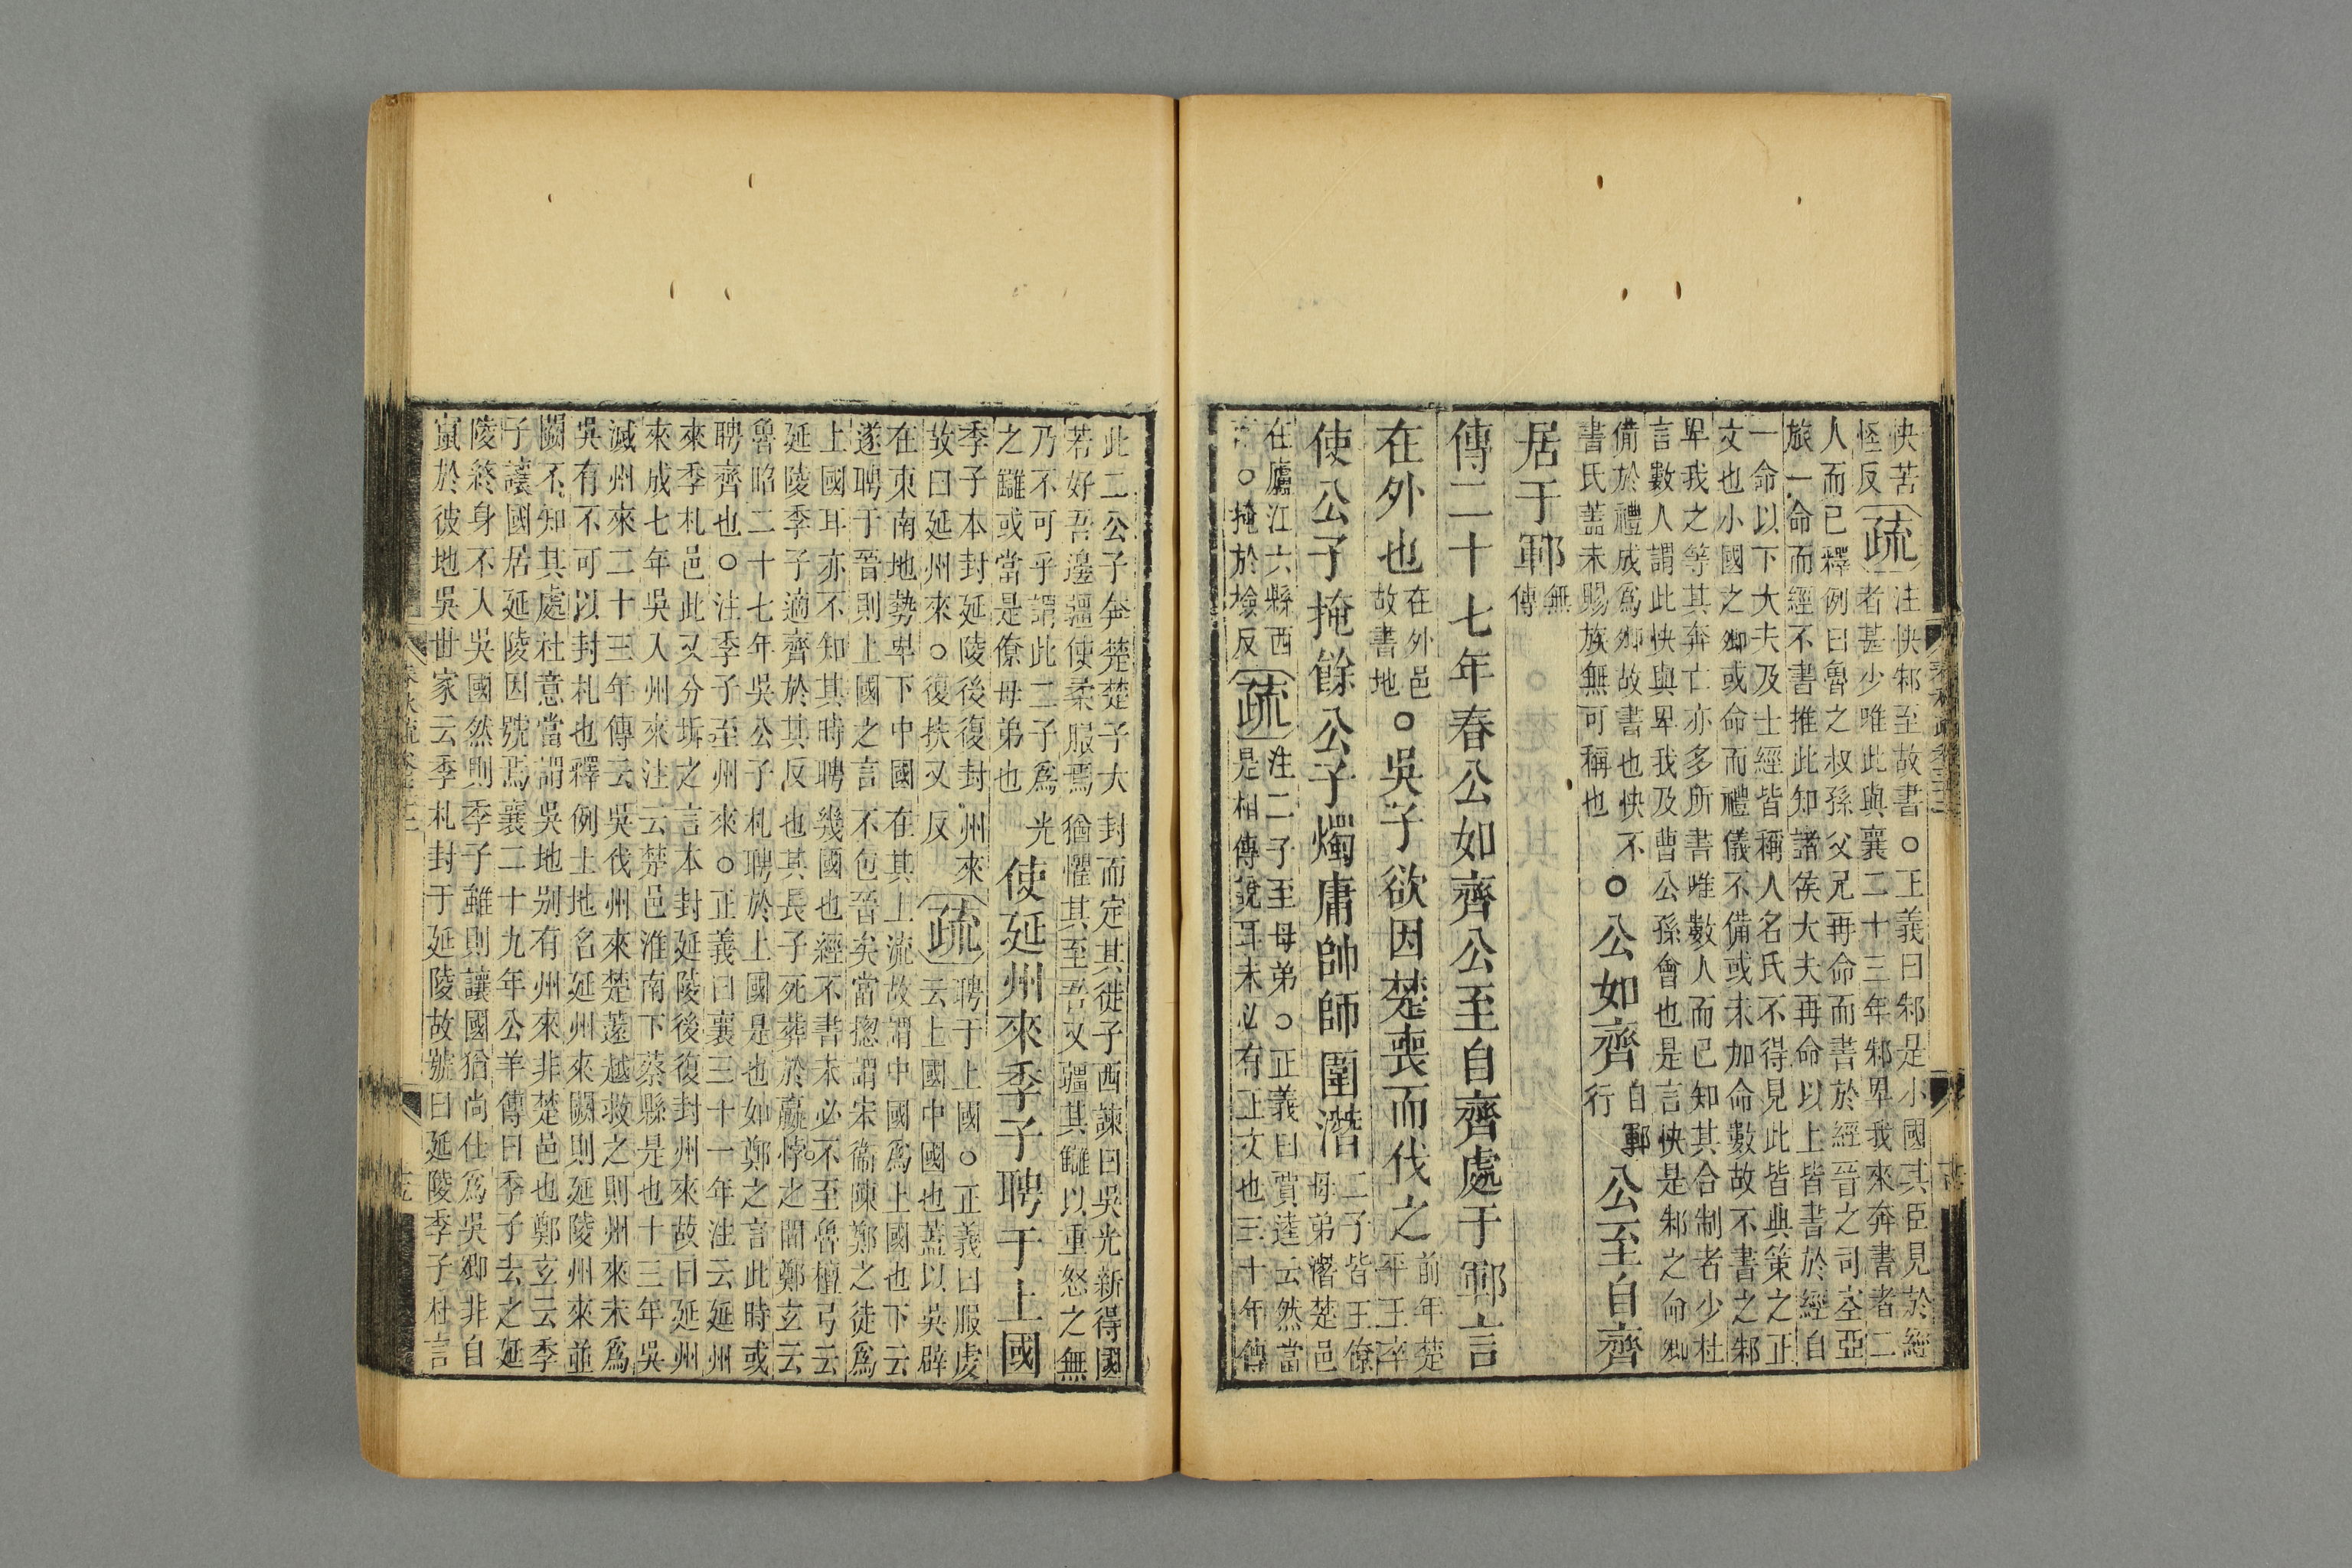 快苦
怪反
疏
注快邾至故書○正義曰邾是小國其臣見於經
者甚少唯此與襄二十三年邾畀我來奔書者二
人而已釋例曰魯之叔孫父兄再命而書於經晉之司空亞
旅一命而經不書推此知諸侯大夫再命以上皆書於經自
一命以下大夫及士經皆稱人名氏不得見此皆典策之正
文也小國之卿或命而禮儀不備或未加命數故不書之邾
畀我之等其奔亡亦多所書唯數人而已知其合制者少杜
言數人謂此快與畀我及曹公孫會也是言快是邾之命卿
備於禮成爲卿故書也快不
書氏蓋未賜族無可稱也
○公如齊
自鄆
行
公至自齊
居于鄆
無
傳
傳二十七年春公如齊公至自齊處于鄆言
在外也
在外邑
故書地
○吳子欲因楚喪而伐之
前年楚
平王卒
使公子掩餘公子燭庸帥師圍潛
二子皆王僚
母弟潛楚邑
在廬江六縣西
○掩於檢反
疏
注二子至母弟○正義曰賈逵云然當
是相傳說耳未必有正文也三十年傳
此二公子奔楚楚子大封而定其徙子西諫曰吳光新得國
若好吾邊疆使柔服焉猶懼其至吾又疆其讎以重怒之無
乃不可乎謂此二子爲光
之讎或當是僚母弟也
使延州來季子聘于上國
季子本封延陵後復封州來
故曰延州來○復扶又反
疏
聘于上國○正義曰服虔
云上國中國也蓋以吳辟
在東南地勢卑下中國在其上流故謂中國爲上國也下云
遂聘于晉則上國之言不包晉矣當揔謂宋衞陳鄭之徒爲
上國耳亦不知其時聘幾國也經不書未必不至魯檀弓云
延陵季子適齊於其反也其長子死葬於嬴博之間鄭玄云
魯昭二十七年吳公子札聘於上國是也如鄭之言此時或
聘齊也○注季子至州來○正義曰襄三十一年注云延州
來季札邑此又分坼之言本封延陵後復封州來故曰延州
來成七年吳入州來注云楚邑淮南下蔡縣是也十三年吳
滅州來二十三年傳云吳伐州來楚薳越救之則州來未爲
吳有不可以封札也釋例土地名延州來闕則延陵州來並
闕不知其處杜意當謂吳地别有州來非楚邑也鄭玄云季
子讓國居延陵因號焉襄二十九年公羊傳曰季子去之延
陵終身不入吳國然則季子雖則讓國猶尚仕爲吳卿非自
竄於彼地吳世家云季札封于延陵故號曰延陵季子杜言